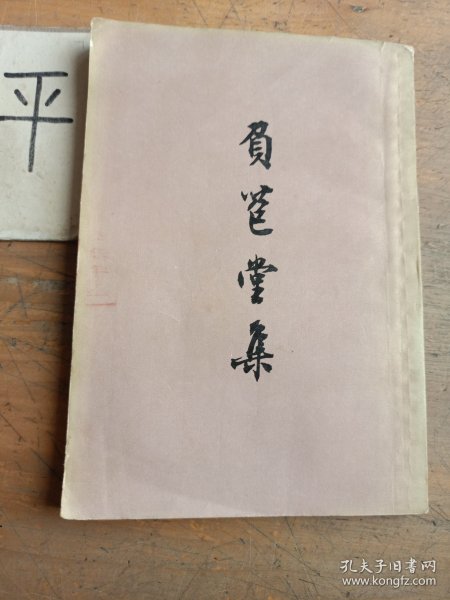 平
負苞堂集
孔夫子旧书网
www.kongfz.com